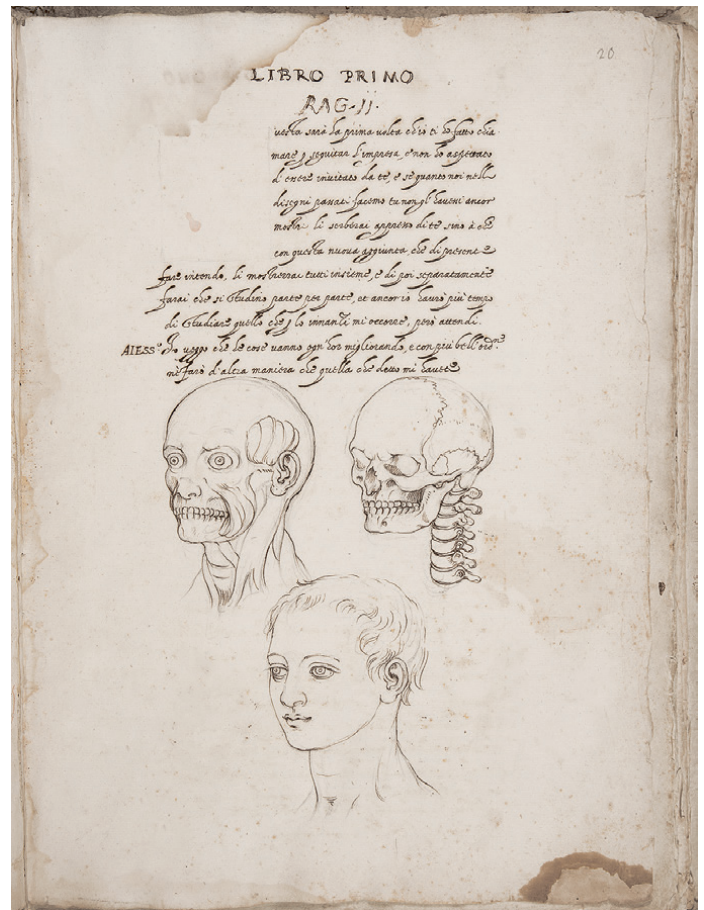 20
LIBRO PRIMO
RAG. II.
uesta sarà la prima volta ch'io ti hò fatto chia
mare seguitar l'impresa, e non hò aspettato
d'essere invitato da te, e se quanto noi nelli
disegni passati facemo tu non gl'havessi ancor
mostri, li serberai appresso di te sino à che
con questa nuova aggiunta, che di presente
fare intendo, li mostrerai tutti insieme, e di poi separatamente
farai che si studino parte per parte, et ancor io haurò più tempo
di studiare quello che lo innanti mi occorre, però attendi.
AlESSº. Io veggo che le cose vanno ogn'hor migliorando, e con più bell'ordne
ne farò d'altra maniera che quella che detto mi havete